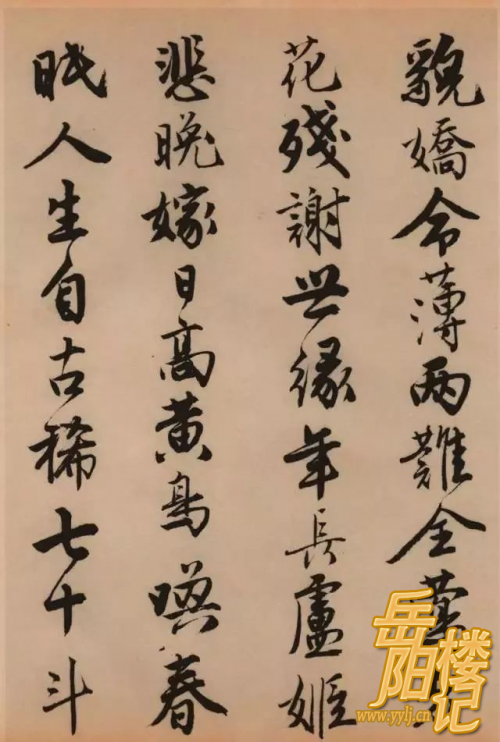 貌嬌命薄兩難全
花殘謝世緣年長盧姬
悲晚嫁日高黃鳥喚春
眠人生自古稀七十斗
岳阳楼记
www.yylj.cn